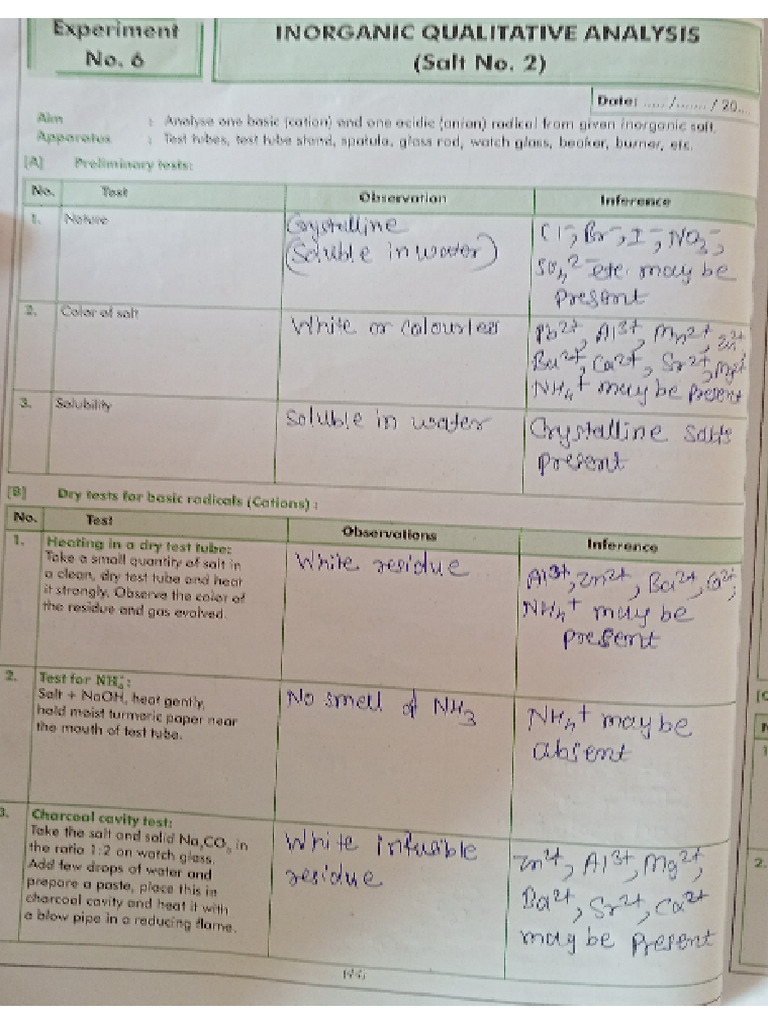 Experiment
No. 6
INORGANIC QUALITATIVE ANALYSIS
(Salt No. 2)
Date: ...../......./ 20....
Aim : Analyse one basic (cation) and one acidic (anion) radical from given inorganic salt.
Apparatus : Test tubes, test tube stand, spatula, glass rod, watch glass, beaker, burner, etc.
[A] Preliminary tests:
No. Test Observation Inference
1. Nature
Crystalline
(Soluble in water)
Cl⁻, Br⁻, I⁻, NO₃⁻,
SO₄²⁻ etc. may be
present
2. Color of salt
White or colourless
Pb²⁺, Al³⁺, Mn²⁺, Zn²⁺,
Ba²⁺, Ca²⁺, Sr²⁺, Mg²⁺
NH₄⁺ may be present
3. Solubility
Soluble in water
Crystalline salts
present
[B] Dry tests for basic radicals (Cations) :
No. Test Observations Inference
1. Heating in a dry test tube:
Take a small quantity of salt in
a clean, dry test tube and heat
it strongly. Observe the color of
the residue and gas evolved.
White residue
Al³⁺, Zn²⁺, Ba²⁺, Ca²⁺,
NH₄⁺ may be
present
2. Test for NH₄⁺:
Salt + NaOH, heat gently,
hold moist turmeric paper near
the mouth of test tube.
No smell of NH₃
NH₄⁺ may be
absent
3. Charcoal cavity test:
Take the salt and solid Na₂CO₃ in
the ratio 1:2 on watch glass.
Add few drops of water and
prepare a paste, place this in
charcoal cavity and heat it with
a blow pipe in a reducing flame.
White infusible
residue
Zn²⁺, Al³⁺, Mg²⁺,
Ba²⁺, Sr²⁺, Ca²⁺
may be present